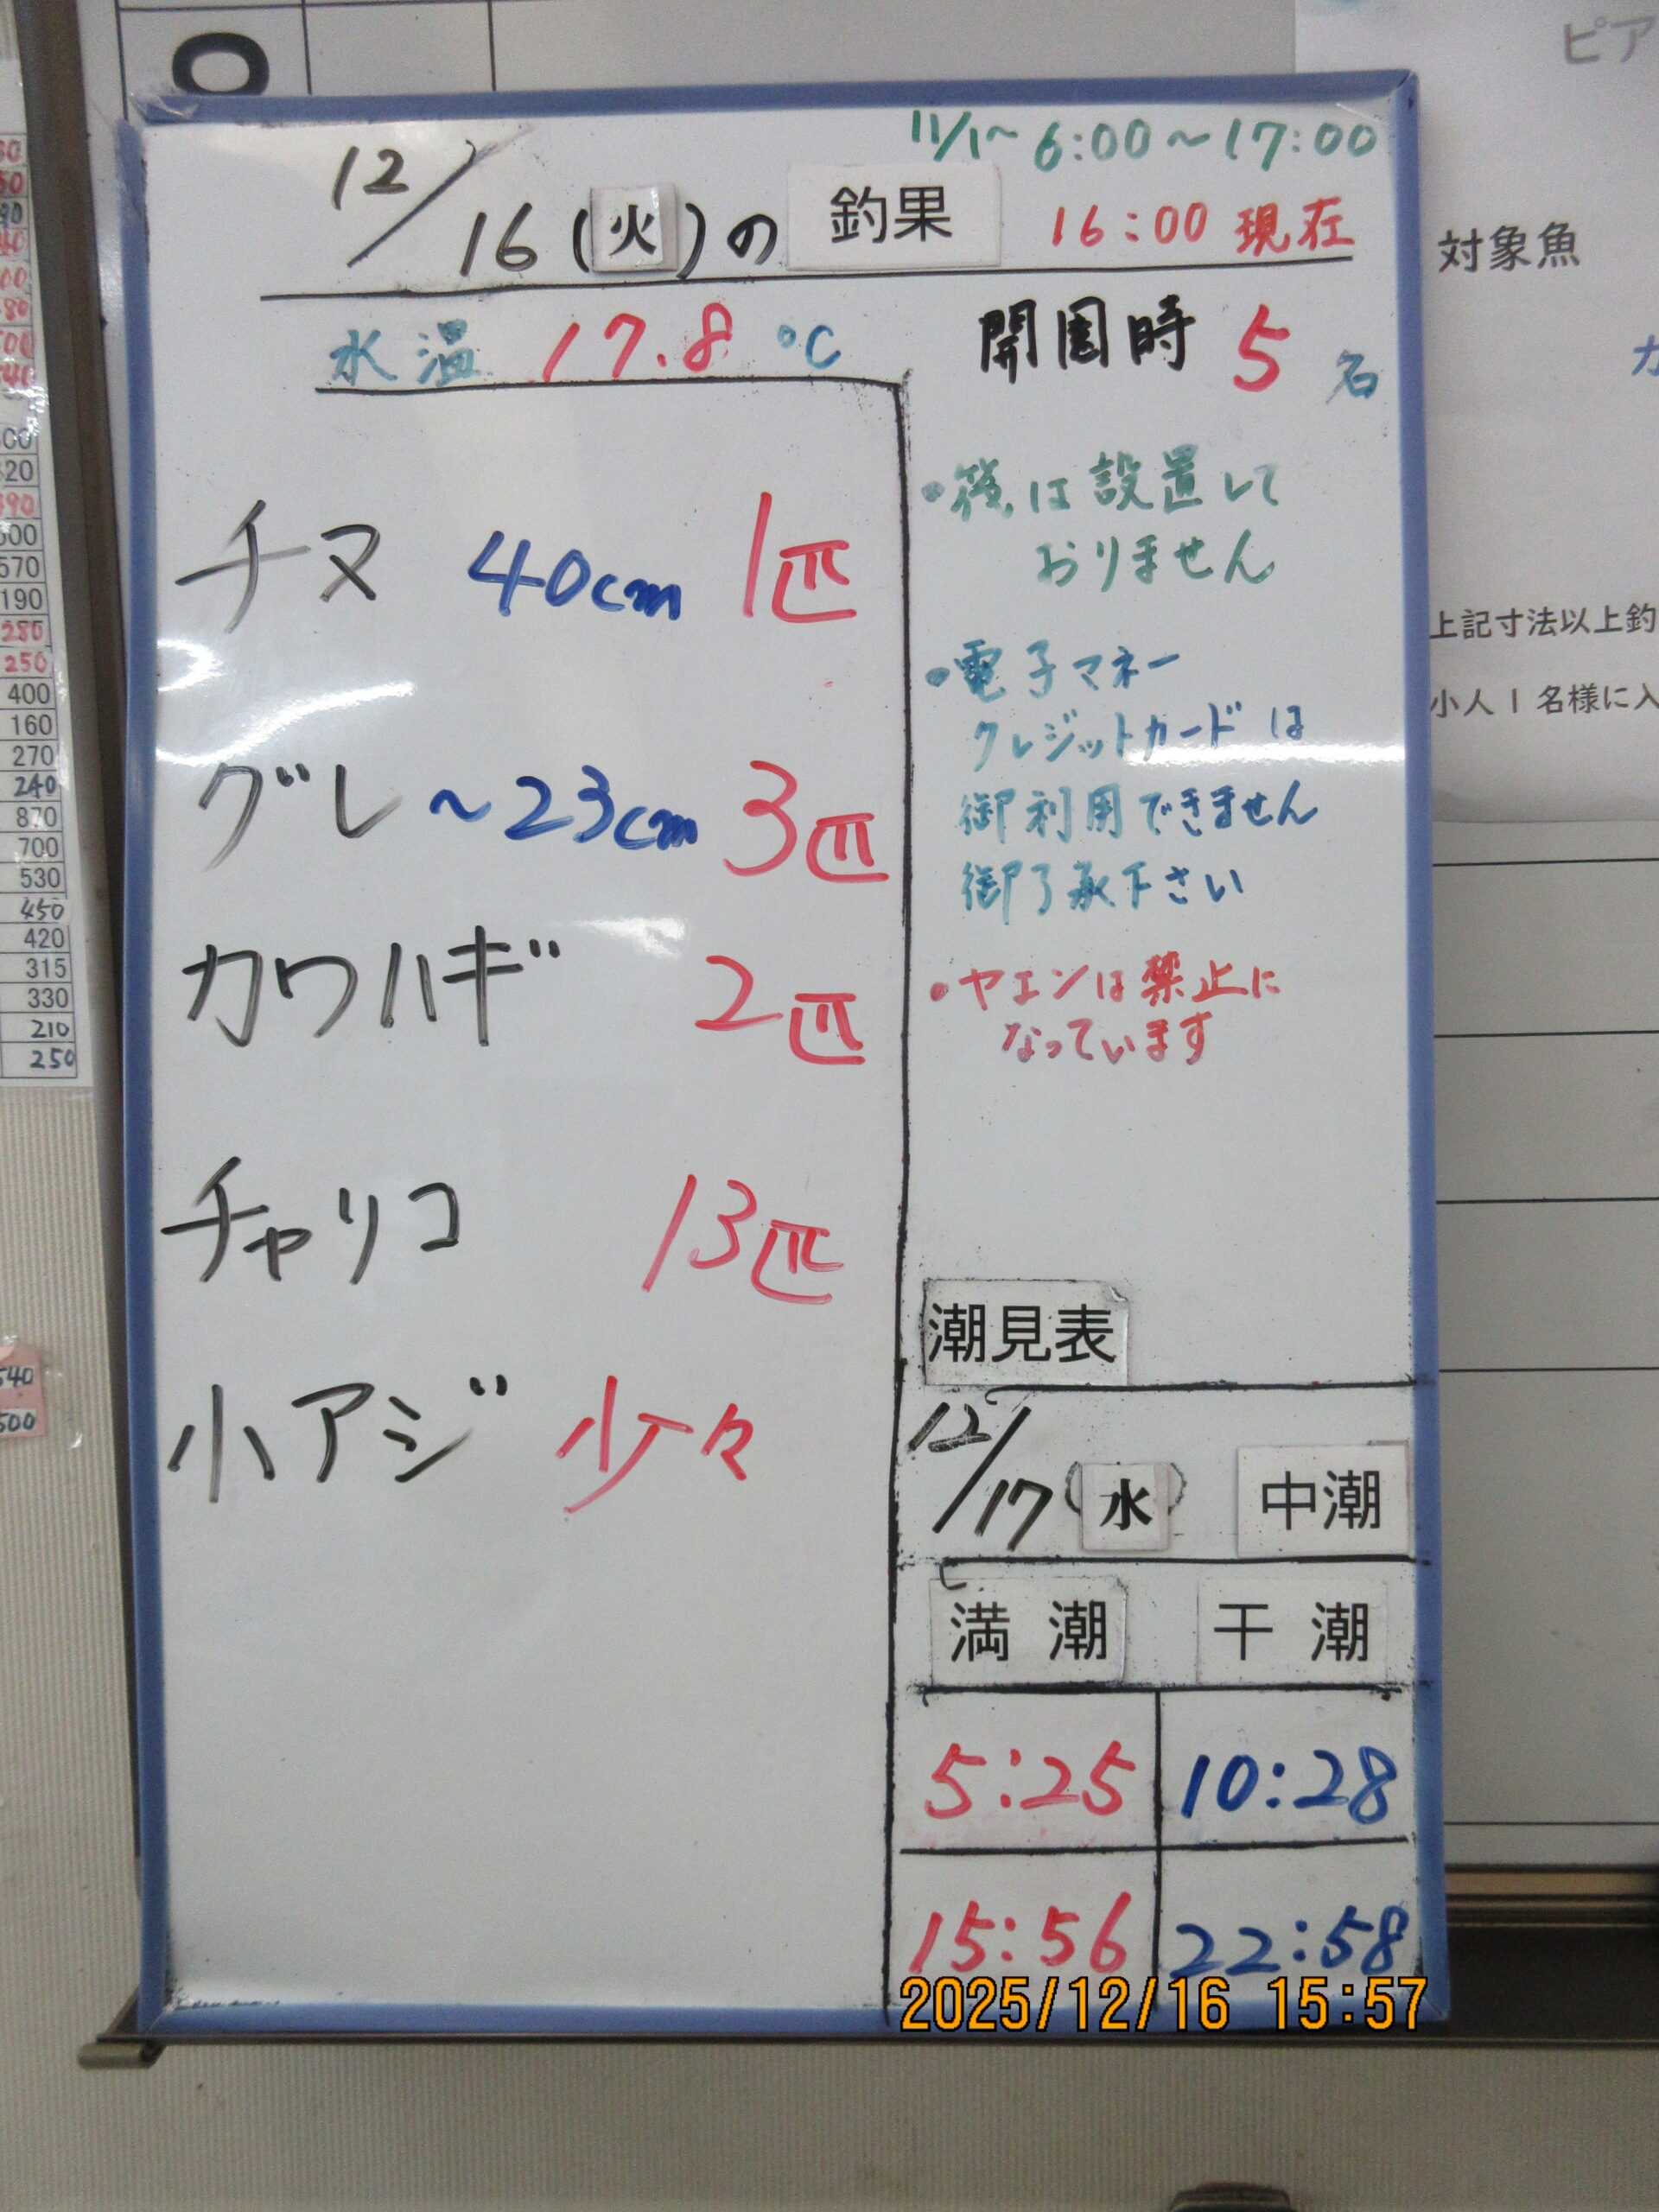 11/1~ 6:00~17:00
12/16(火)の 釣果 16:00 現在
水温 17.8 ℃
開園時 5名
チヌ 40cm 1匹
グレ ~23cm 3匹
カワハギ 2匹
チャリコ 13匹
小アジ 少々
・筏は設置して
おりません
・電子マネー
クレジットカードは
御利用できません
御了承下さい
・ヤエンは禁止に
なっています
潮見表
12/17(水) 中潮
満潮 干潮
5:25 10:28
15:56 22:58
2025/12/16 15:57
ピア
対象魚
上記寸法以上釣
小人1名様に入
400
160
270
240
870
700
530
450
420
315
330
210
250
540
500